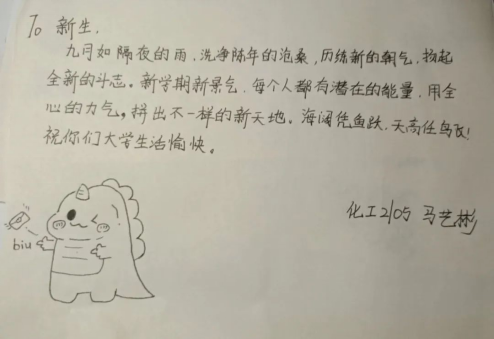 To 新生,
九月如隔夜的雨,洗净陈年的沧桑,历练新的朝气,扬起
全新的斗志。新学期新景气,每个人都有潜在的能量,用全
心的力气。拼出不一样的新天地。海阔凭鱼跃,天高任鸟飞!
祝你们大学生活愉快。
biu
化工2105 马艺彬